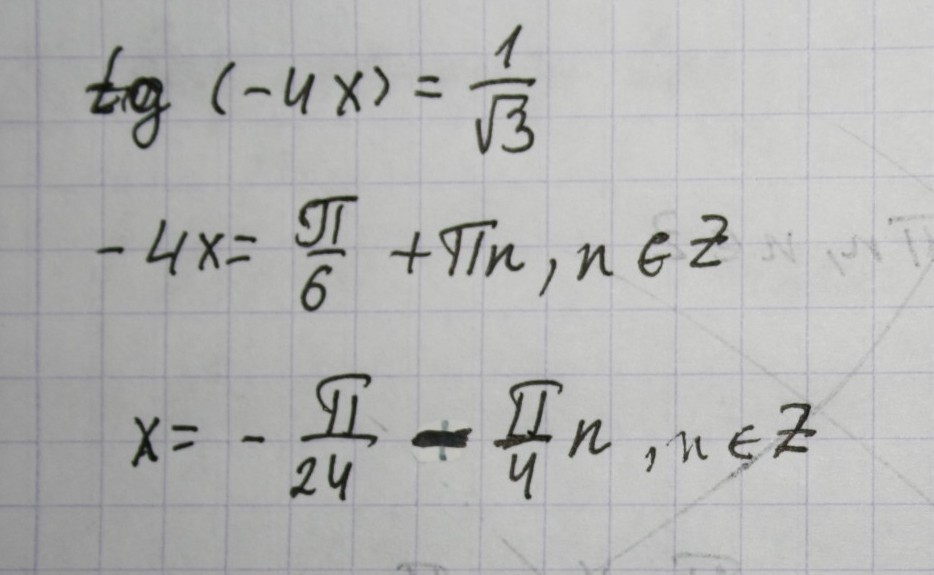 tg (-4x) = 1/√3
-4x = π/6 + πn, n ∈ Z
x = - π/24 - π/4 n, n ∈ Z